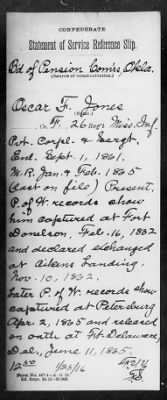 CONFEDERATE
Statement of Service Reference Slip.
Bd of Pension Com'rs, Okla.
(Source of communication.)
Oscar F. Jones
(Name.)
F. 26 regt. Miss. Inf.
Pvt. Corpl. & Sergt.
Enl. Sept. 1, 1861.
M.R. Jan. & Feb. 1865
(last on file) Present.
P. of W. records show
him captured at Fort
Donelson, Feb. 16, 1862
and declared exchanged
at Aikens Landing,
Nov. 10, 1862.
Later P. of W. records show
captured at Petersburg
Apr. 2, 1865 and released
on oath at Ft. Delaware,
Del., June 11, 1865.
1/25/16